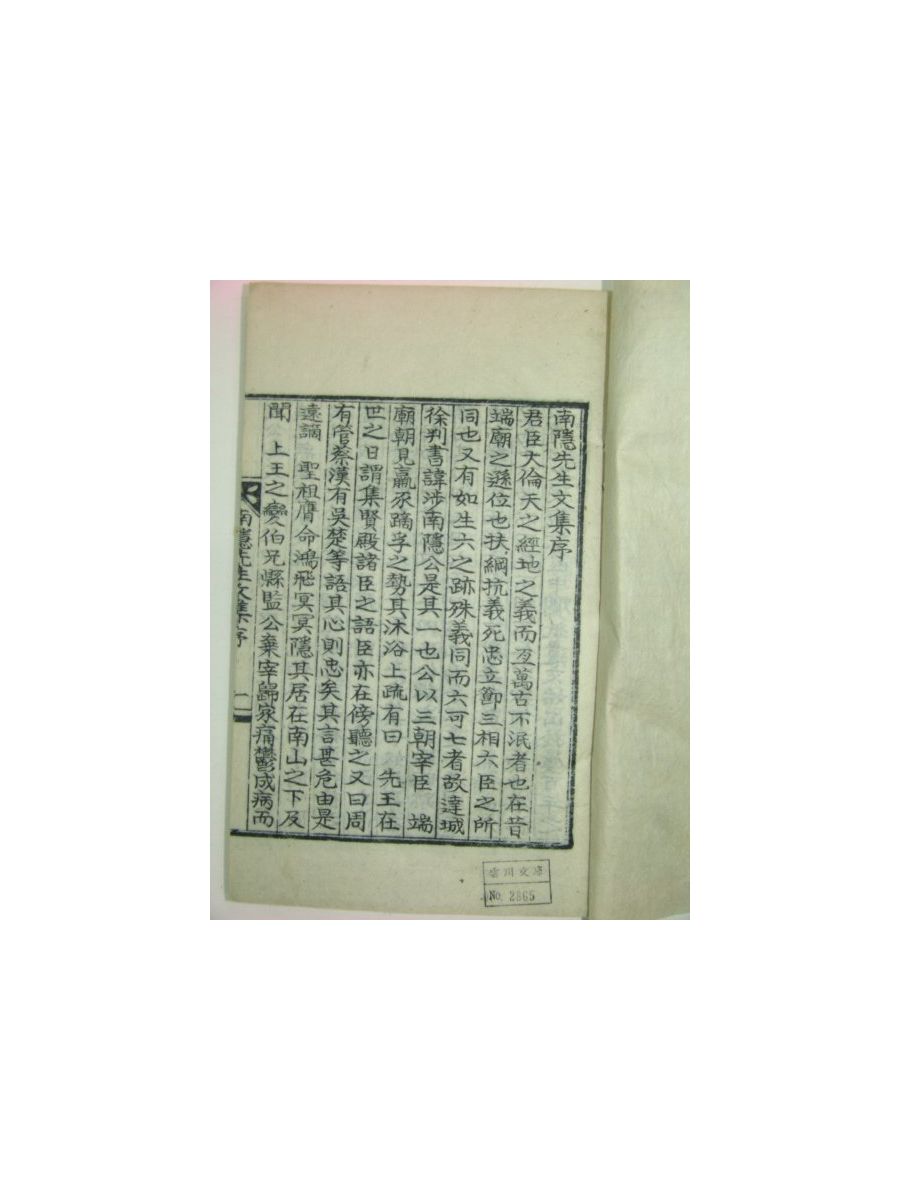 南隱先生文集序
君臣大倫天之經地之義而亙萬古不泯者也在昔
端廟之遜位也扶綱抗義死忠立節三相六臣之所
同也又有如生六之跡殊義同而六可七者故達城
徐判書諱涉南隱公是其一也公以三朝宰臣 端
廟朝見羸豕蹢孚之勢其沐浴上疏有曰 先王在
世之日謂集賢殿諸臣之語臣亦在傍聽之又曰周
有管蔡漢有吳楚等語其心則忠矣其言甚危由是
遠謫 聖祖膺命鴻飛冥冥隱其居在南山之下及
聞 上王之變伯兄縣監公棄宰歸家痛鬱成病而
南隱先生文集序 一
文庫
No. 2865